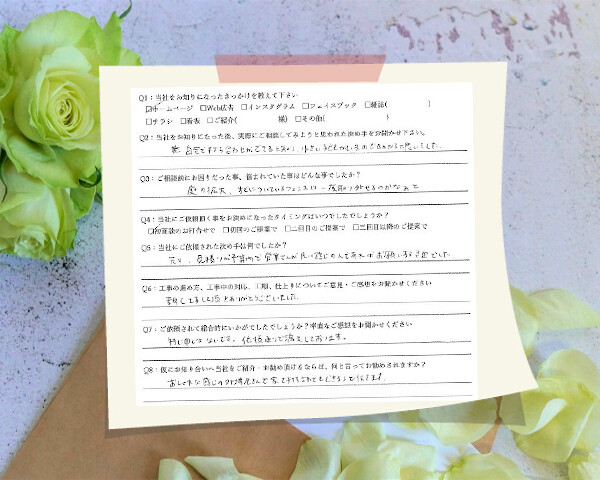 Q1：当社をお知りになったきっかけを教えて下さい
☑ホームページ　□Web広告　□インスタグラム　□フェイスブック　□雑誌(　　　　)
□チラシ　□看板　□ご紹介(　　　　様)　□その他(　　　　)
Q2：当社をお知りになった後、実際にご相談してみようと思われた決め手をお聞かせ下さい。
自宅で打ち合わせができると知り、小さい子どもがいるので
Q3：ご相談前にお困りだった事、悩まれていた事はどんな事でしたか？
庭の拡大、すでについているフェンスは一度取り外せるのかなぁと
Q4：当社にご依頼頂く事をお決めになったタイミングはいつでしたでしょうか？
☑初面談のお打合せで　□初回のご提案で　□二回目のご提案で　□三回目以降のご提案で
Q5：当社にご依頼された決め手は何でしたか？
見積りが予算内で営業さんが良い感じの人であればお願いする予定でした。
Q6：工事の進め方、工事中の対応、工期、仕上りについてご意見・ご感想をお聞かせください
ありがとうございました。
Q7：ご依頼されて総合的にいかがでしたでしょうか？率直なご感想をお聞かせください
特に申し分ないです。依頼通りで満足しております。
Q8：仮にお知り合いへ当社をご紹介・お勧め頂けるならば、何と言ってお勧めされますか？
おしゃれな感じの外構屋さんで家で打ち合わせもできるよと伝えます。